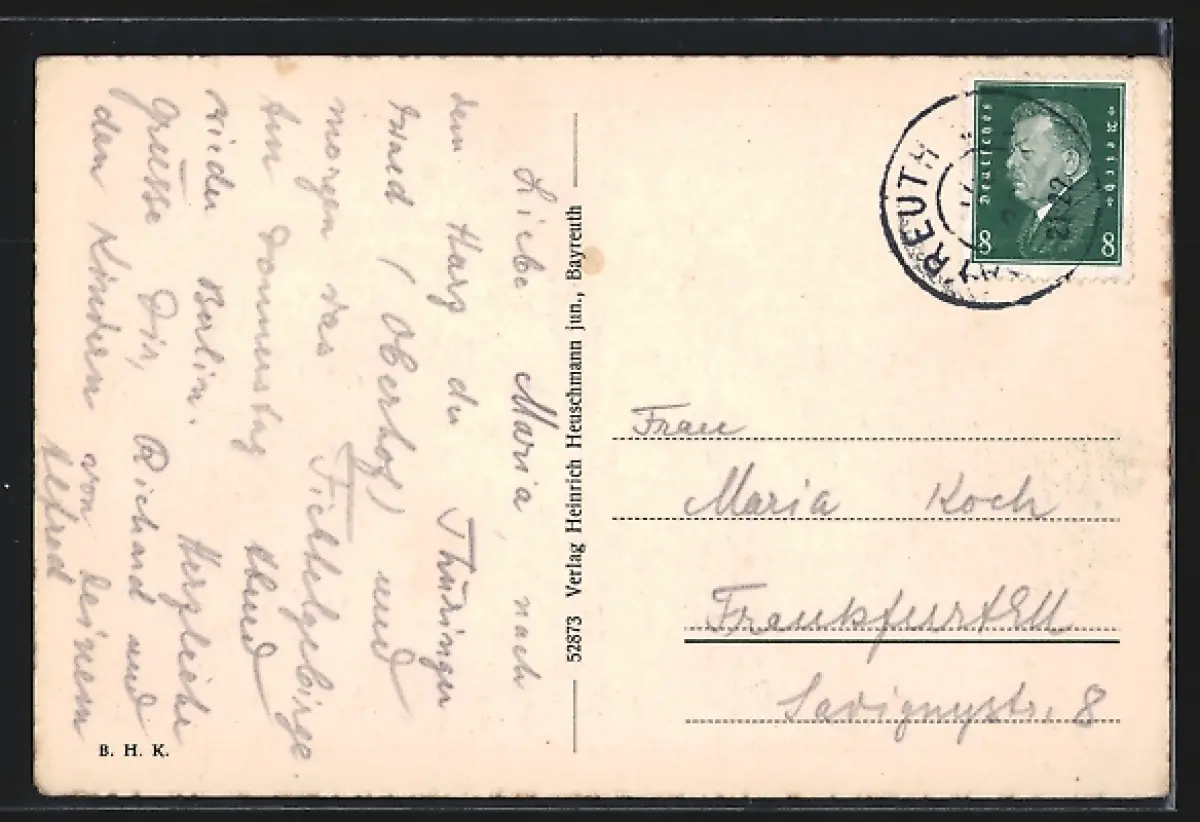 Liebe Maria, nach
dem Harz der Thüringer
Wald (Oberhof) und
morgen das Fichtelgebirge.
Am Donnerstag Abend
wieder Berlin. Herzliche
Grüsse Dir, Richard und
den Kindern von Deinem
Alfred
B. H. K.
52873 Verlag Heinrich Heuschmann jun., Bayreuth
Deutsches Reich
8 8
YREUTH
Frau
Maria Koch
Frankfurt a/M
Savignystr. 8